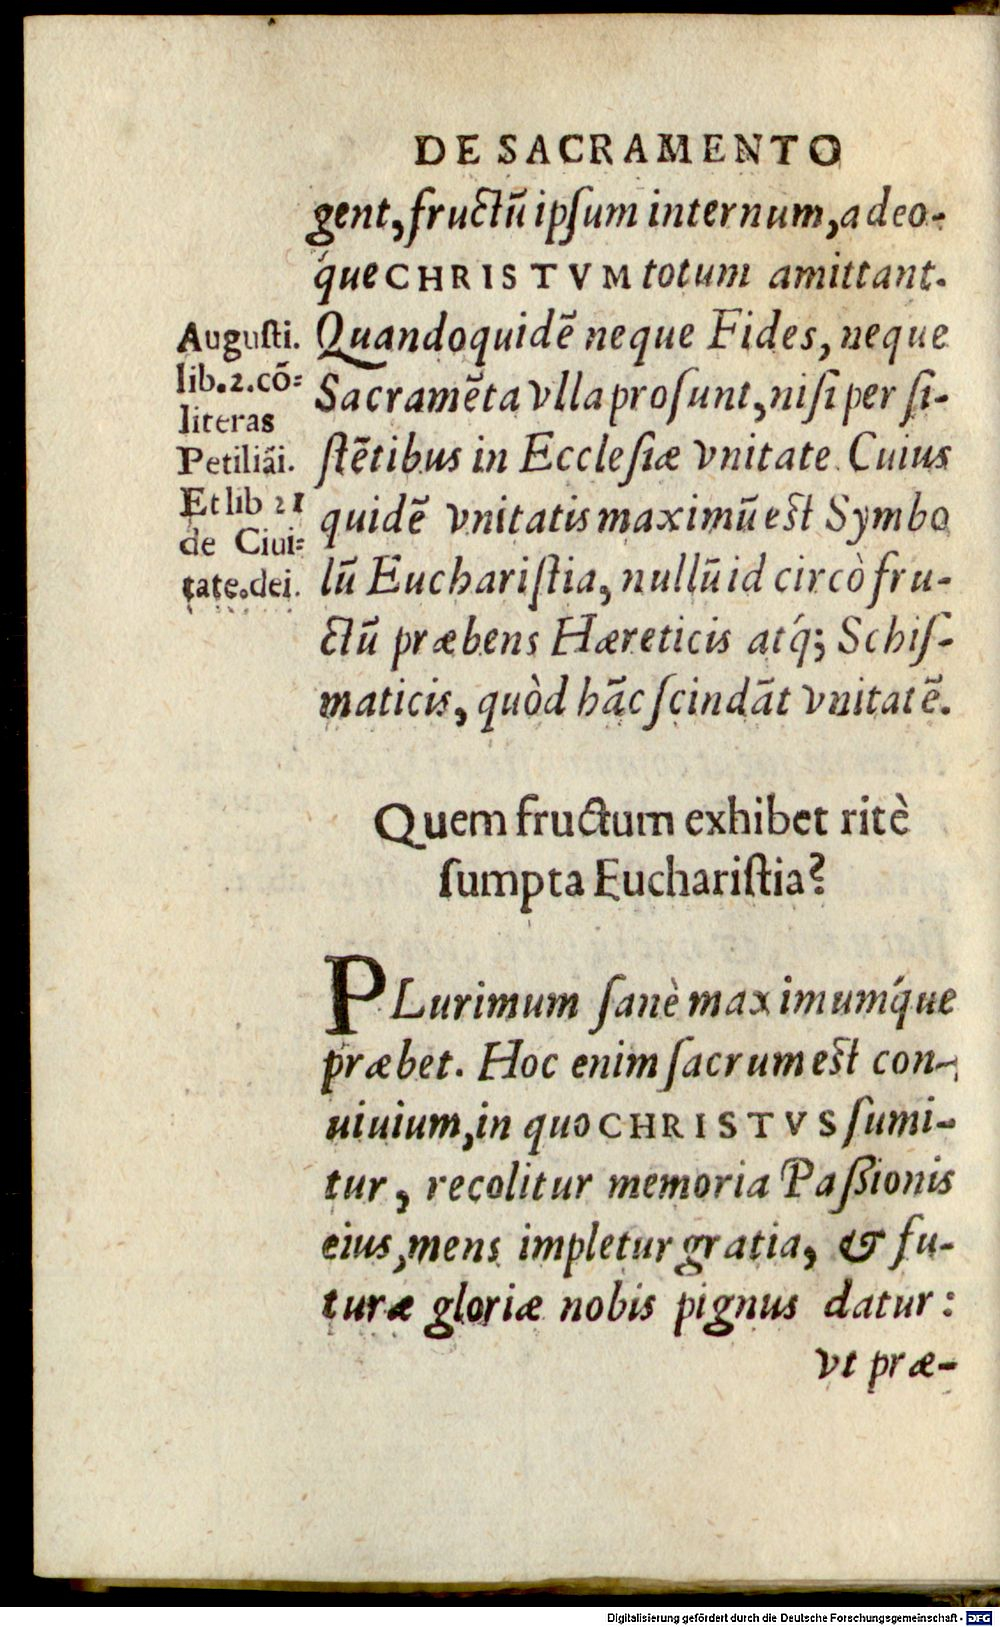 DE SACRAMENTO
gent, fructũ ipſum internum, adeo-
q́ue CHRISTVM totum amittant.
Quandoquidẽ neque Fides, neque
Sacramẽta vlla proſunt, niſi per ſi-
ſtẽtibus in Eccleſiæ vnitate. Cuius
quidẽ vnitatis maximũ est Symbo
lũ Euchariſtia, nullũ id circò fru-
ctũ præbens Hæreticis atq́; Schiſ-
maticis, quòd hãc ſcindãt vnitatẽ.
Auguſti.
lib.2.cõ=
literas
Petiliãi.
Et lib 21
de Ciui=
tate.dei.
Quem fructum exhibet ritè
ſumpta Euchariſtia?
PLurimum ſanè maximumq́ue
præbet. Hoc enim ſacrum est con-
uiuium, in quo CHRISTVS ſumi-
tur, recolitur memoria Paßionis
eius, mens impletur gratia, & fu-
turæ gloriæ nobis pignus datur:
vt præ-
Digitalisierung gefördert durch die Deutsche Forschungsgemeinschaft - DFG